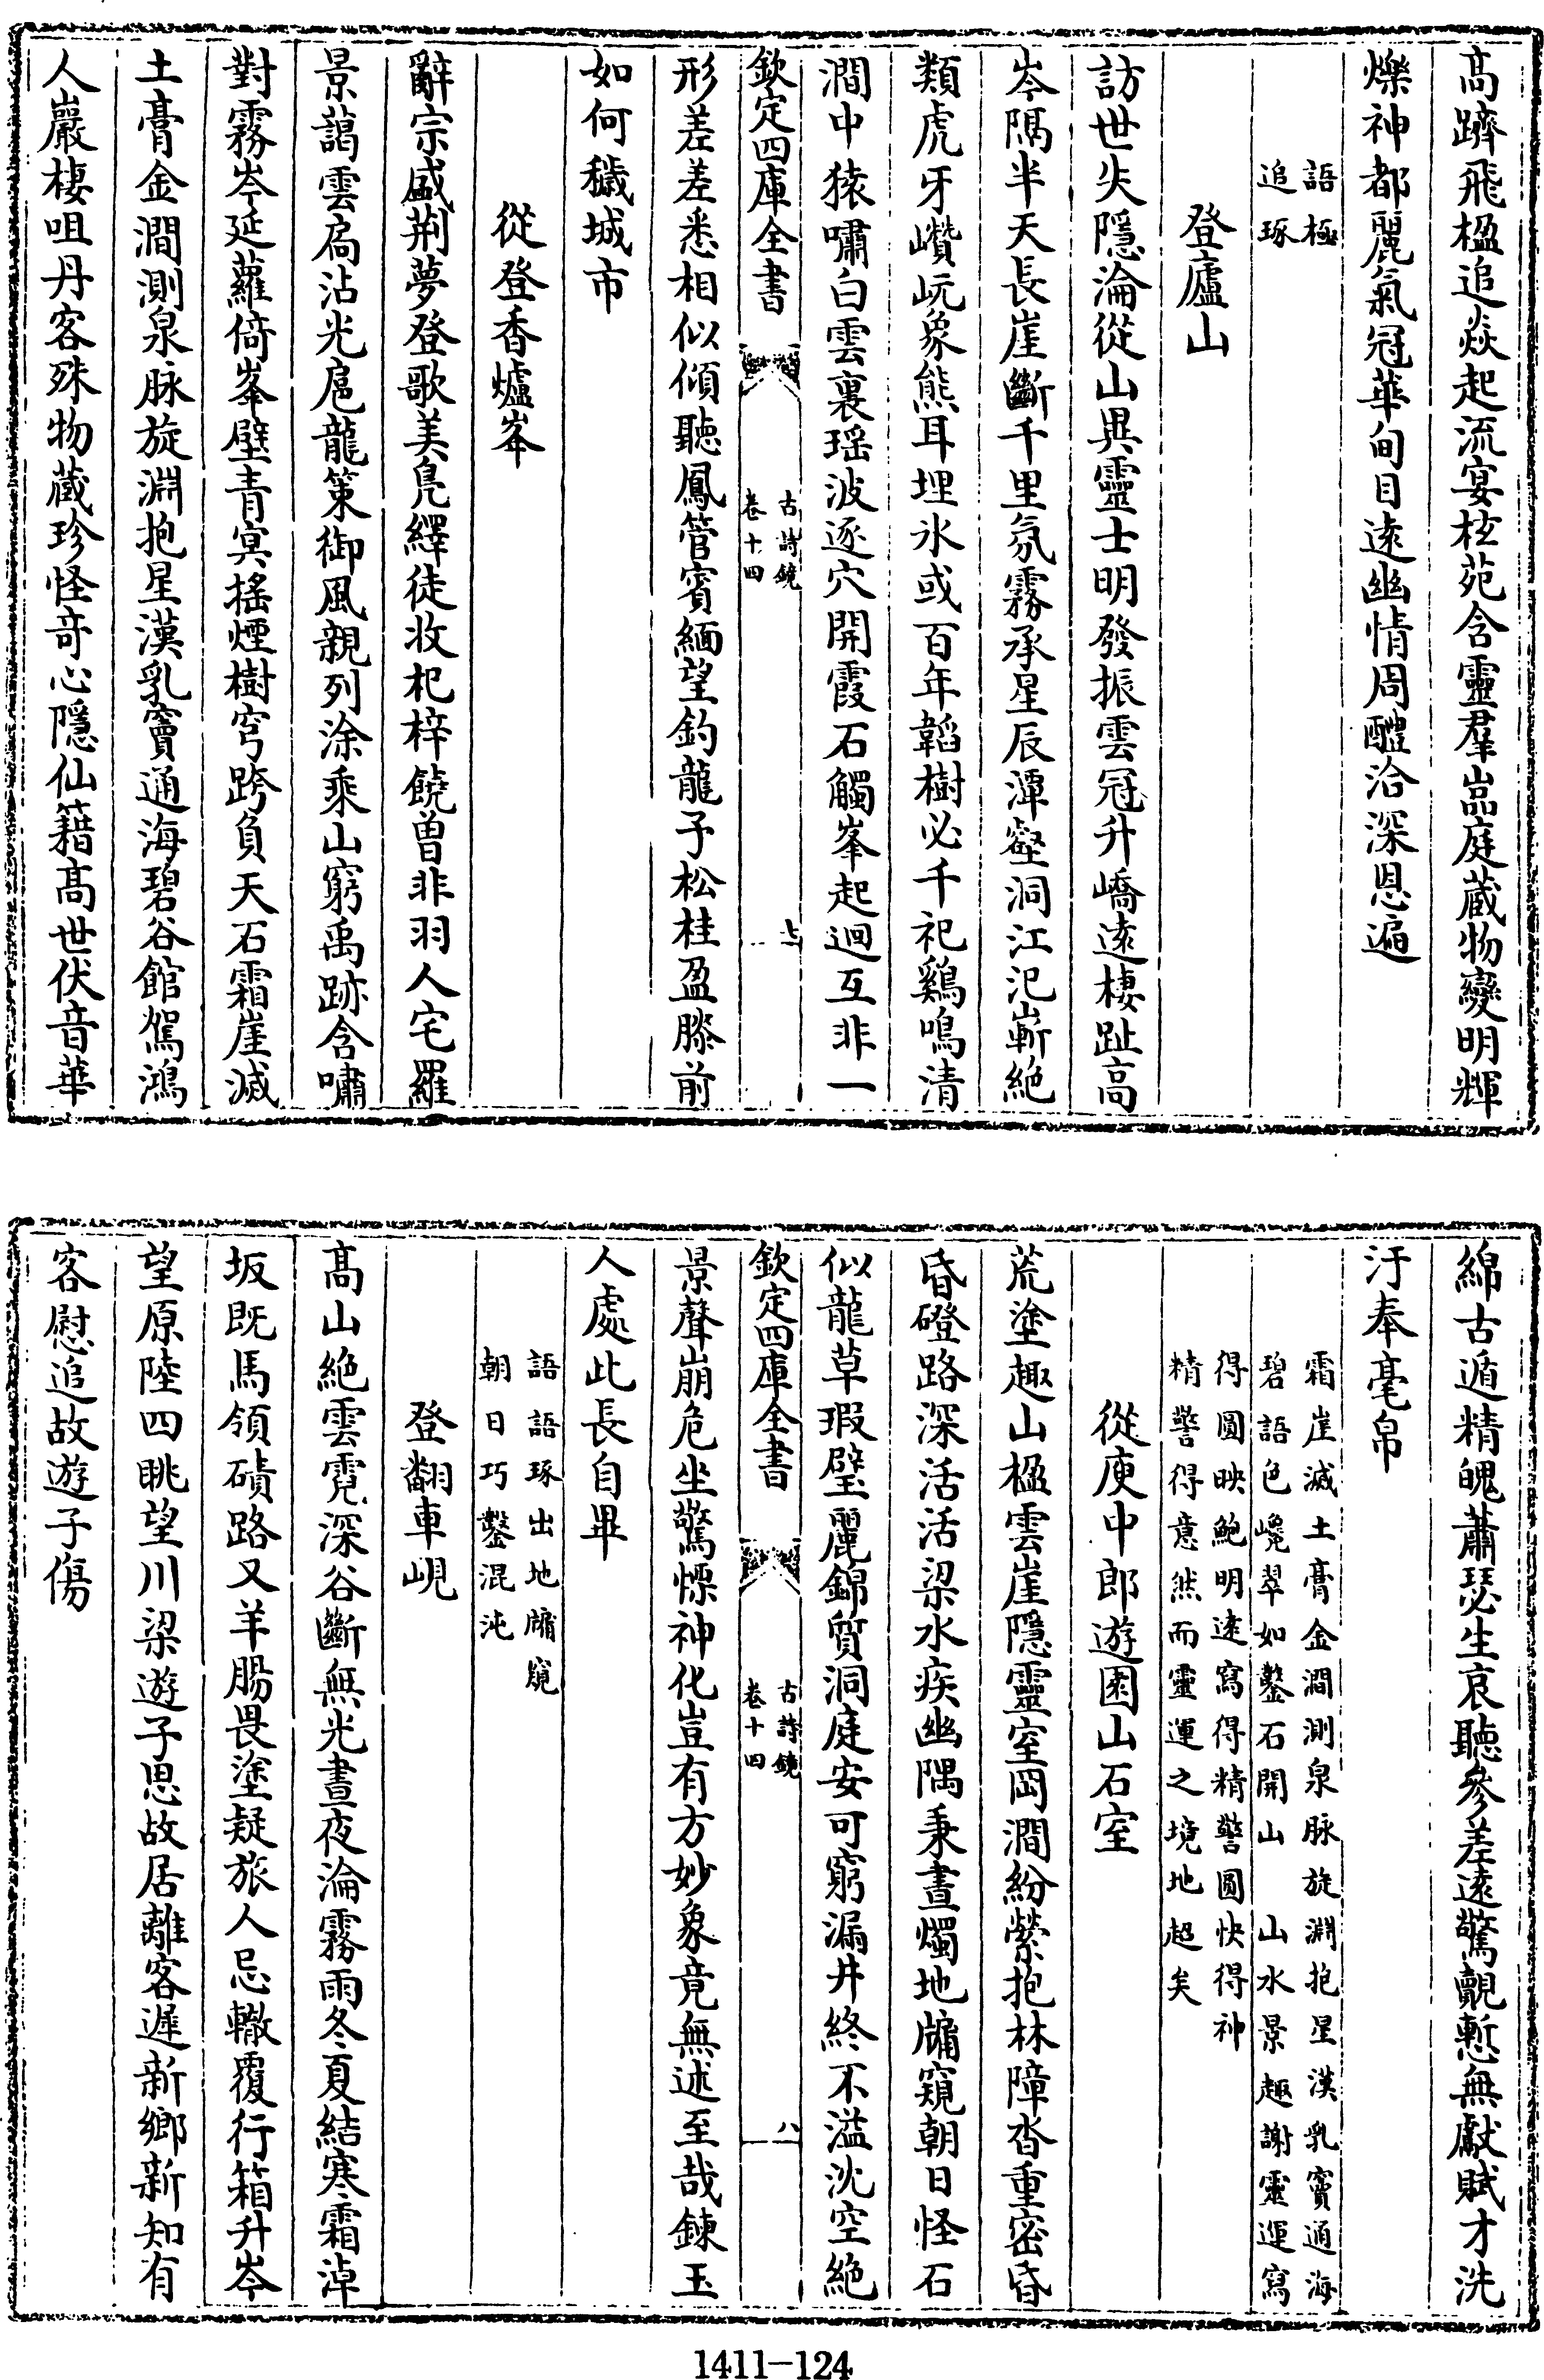 高躋飛楹追焱起流宴紘苑含靈羣嵓庭蔵物變明輝
爍神都麗氣冠華甸目逺幽情周醴洽深恩遍
語極
追琢
登廬山
訪世失隱淪從山異靈士明發振雲冠升嶠逺棲趾高
岑隔半天長崖斷千里氛霧承星辰潭壑洞江汜嶄絶
類虎牙巑岏象熊耳埋氷或百年韜樹必千祀鷄鳴清
澗中猿嘯白雲裏瑶波逐穴開霞石觸峯起迴互非一
欽定四庫全書
古詩鏡
卷十四
七
形差差悉相似傾聽鳳管賓緬望釣龍子松桂盈膝前
如何穢城市
從登香爐峯
辭宗盛荆夢登歌美鳧繹徒收杞梓饒曽非羽人宅羅
景藹雲扃沾光扈龍策御風親列涂乗山窮禹跡含嘯
對霧岑延蘿倚峯壁青㝠揺煙樹穹跨負天石霜崖滅
土膏金澗測泉脉旋淵抱星漢乳竇通海碧谷館駕鴻
人巖棲咀丹客殊物蔵珍怪竒心隱仙籍髙世伏音華
綿古遁精魄蕭瑟生哀聽參差逺驚覿慙無獻賦才洗
汙奉毫帛
霜崖滅土膏金澗測泉脉旋淵抱星漢乳竇通海
碧語色巉翠如鑿石開山 山水景趣謝靈運寫
得圓映鮑明逺寫得精警圓快得神
精警得意然而靈運之境地超矣
從庾中郎遊園山石室
荒塗趣山楹雲崖隱靈室岡澗紛縈抱林障沓重密昏
昏磴路深活活梁水疾幽隅秉晝燭地牖窺朝日怪石
似龍草瑕璧麗錦質洞庭安可窮漏井終不溢沈空絶
欽定四庫全書
古詩鏡
卷十四
八
景聲崩危坐驚慄神化豈有方妙象竟無述至哉鍊玉
人處此長自畢
語語琢出地牖窺
朝日巧鑿混沌
登翻車峴
髙山絶雲霓深谷斷無光晝夜淪霧雨冬夏結寒霜淖
坂既馬領磧路又羊腸畏塗疑旅人忌轍覆行箱升岑
望原陸四眺望川梁遊子思故居離客遲新鄉新知有
客慰追故遊子傷
1411-124